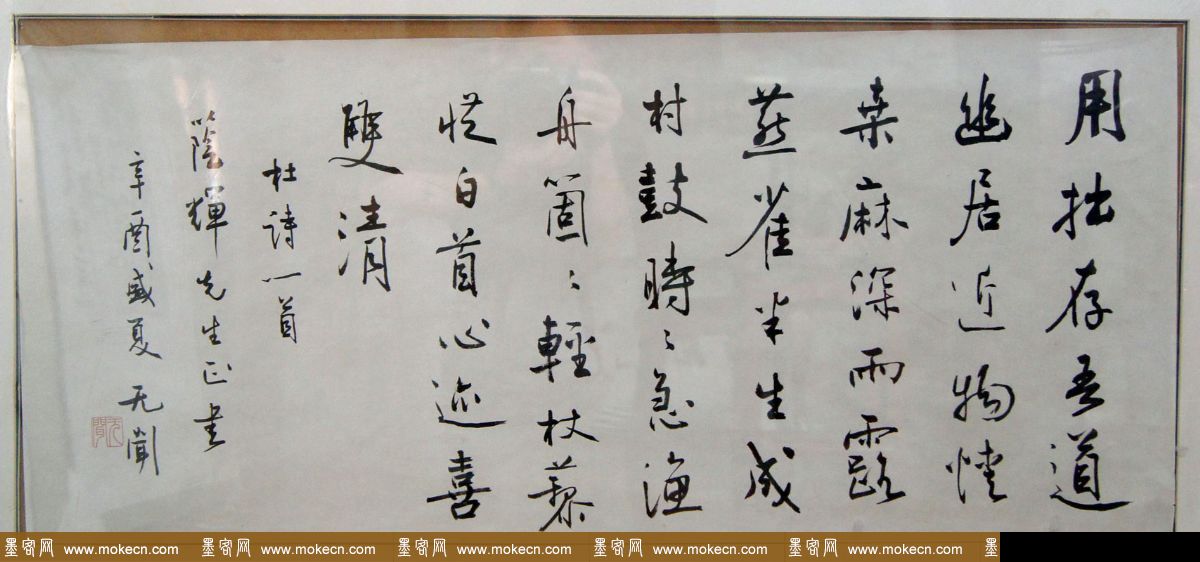 用拙存吾道
幽居近物情
桑麻深雨露
燕雀半生成
村鼓時〻急漁
舟箇〻輕杖藜
從白首心迹喜
雙清
杜詩一首
蔭輝先生正書
辛酉盛夏 无聞
墨客网 www.mokecn.com 墨客网 www.mokecn.com 墨客网 www.mokecn.com 墨客网 www.mokecn.com 墨客网 www.mokecn.com 墨